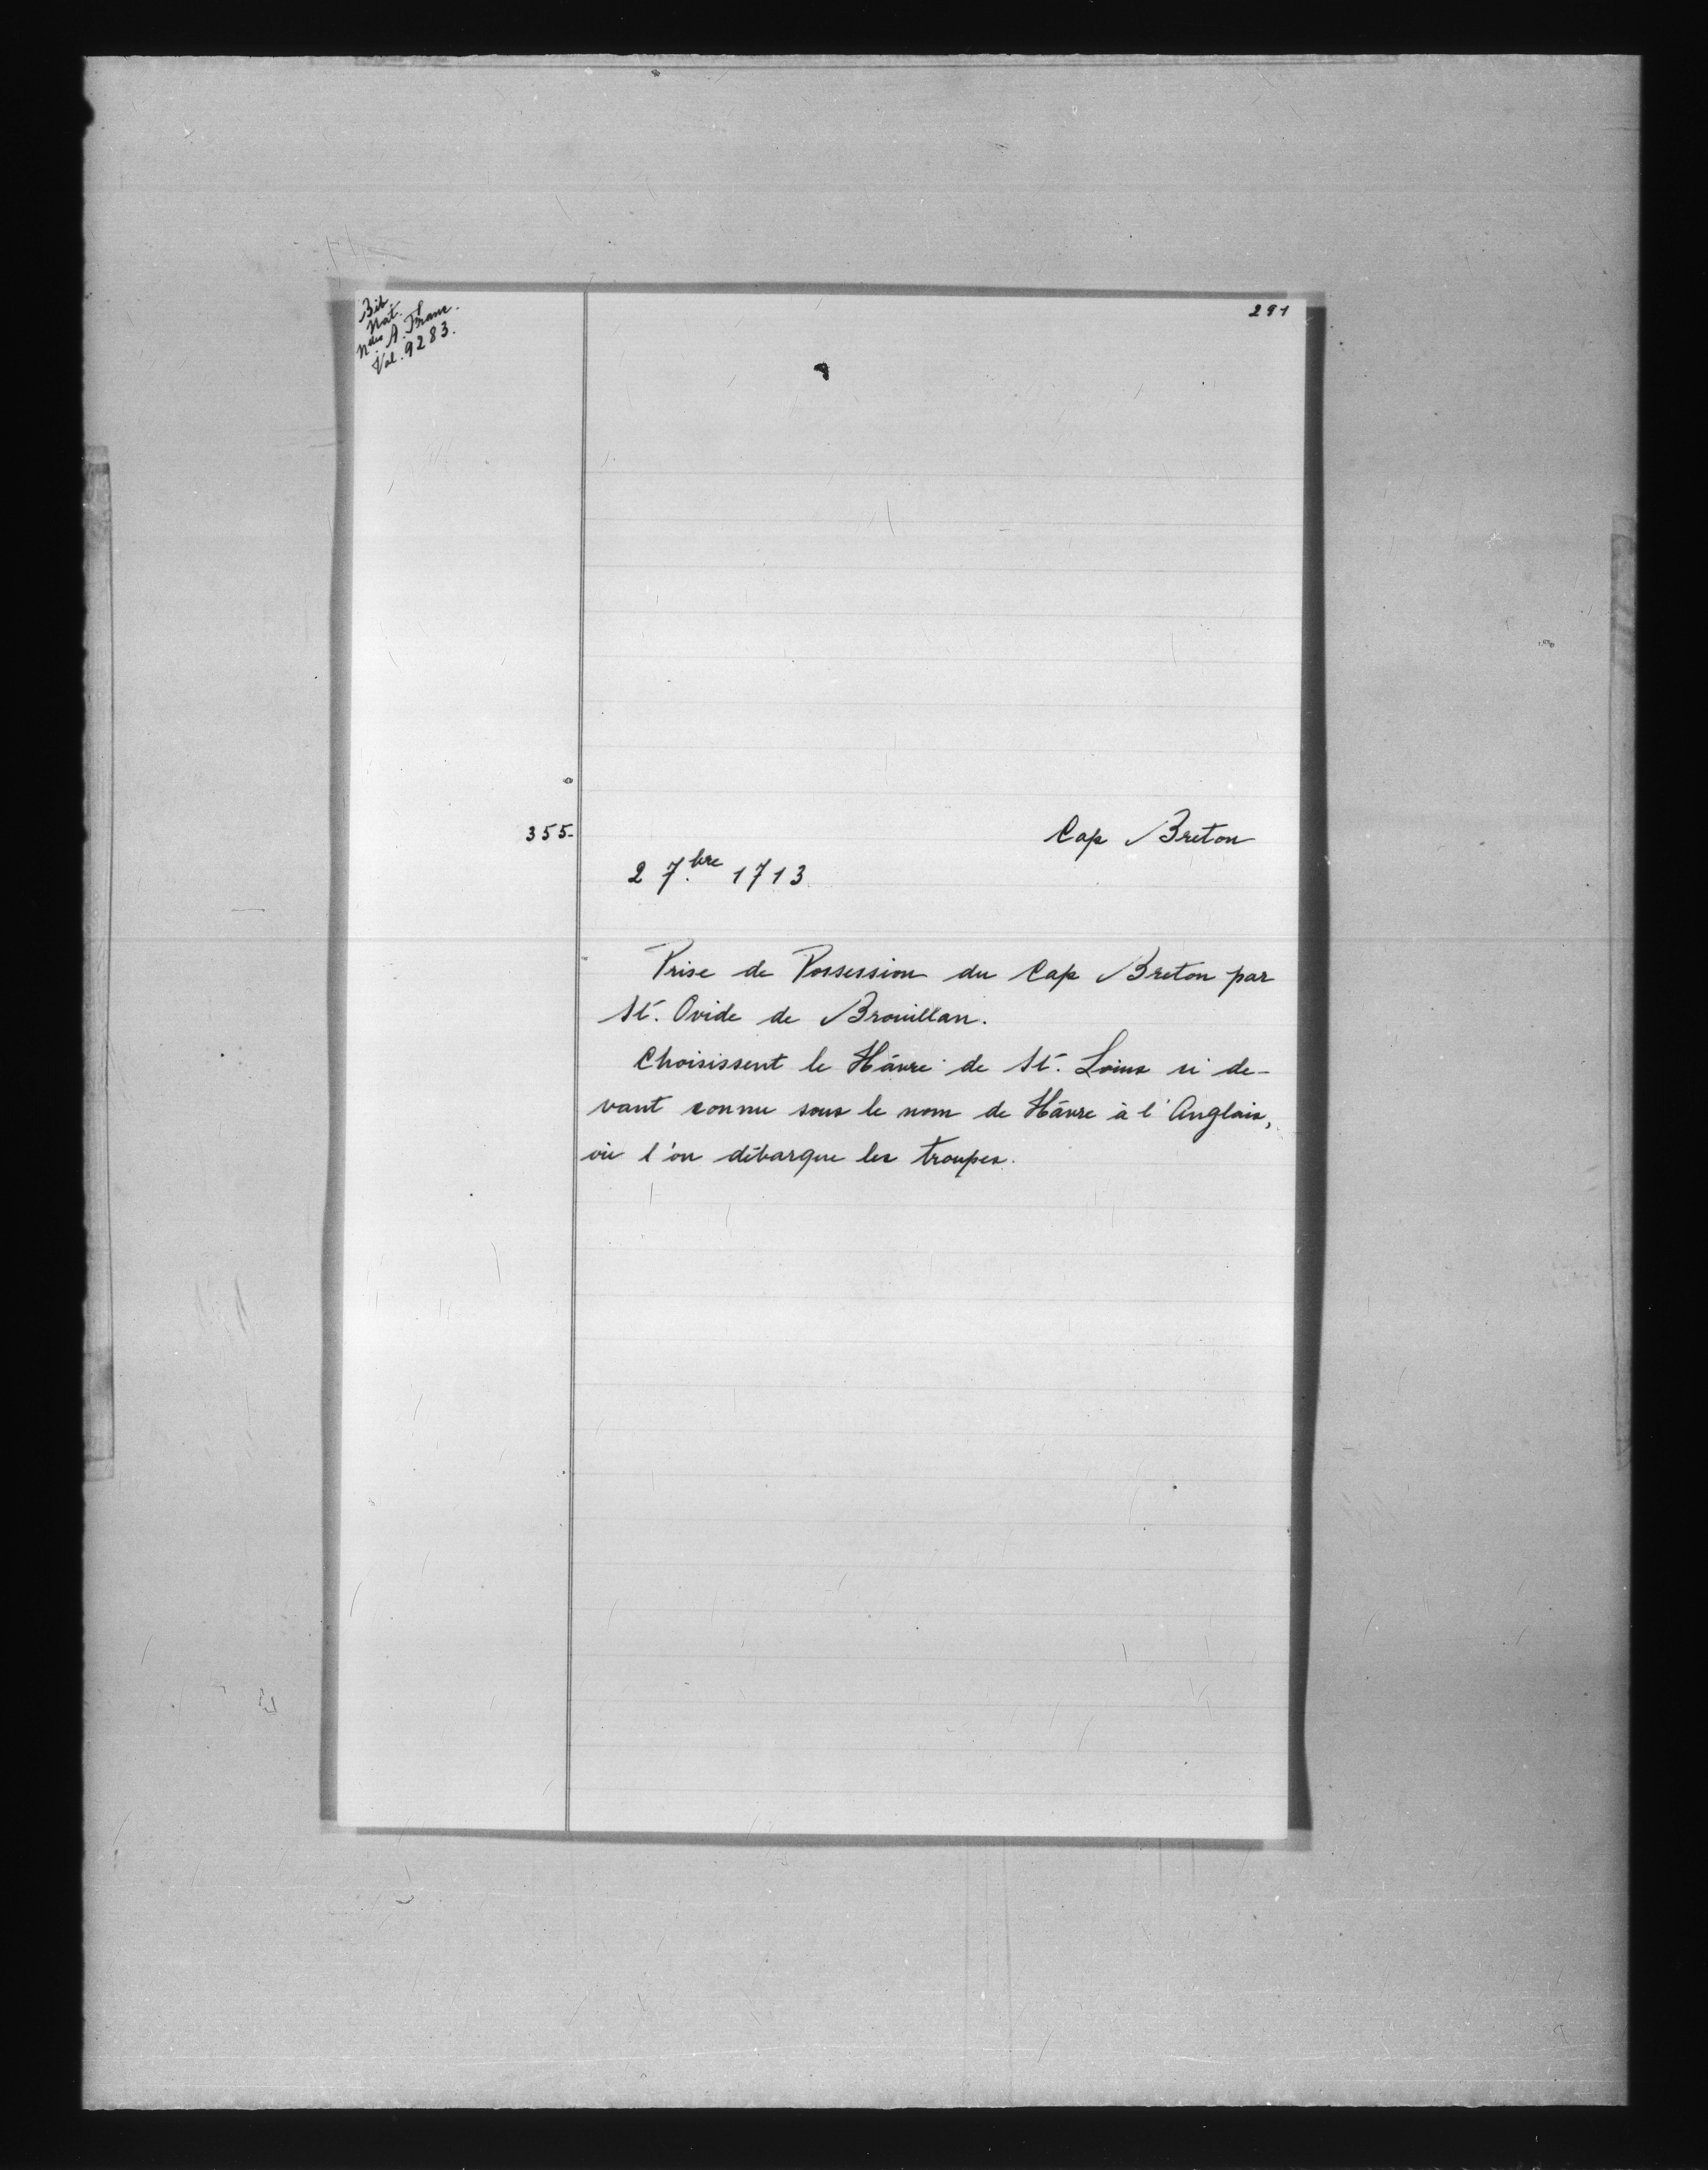 Bib.
Nat.
Nelles A. Franc.
Vol. 9283.
291
355-
Cap Breton
2 7.bre 1713
Prise de Possession du Cap Breton par
St. Ovide de Brouillan.
Choisissent le Hâvre de St. Louis ci de-
vant connu sous le nom de Hâvre à l'Anglais,
où l'on débarque les troupes.